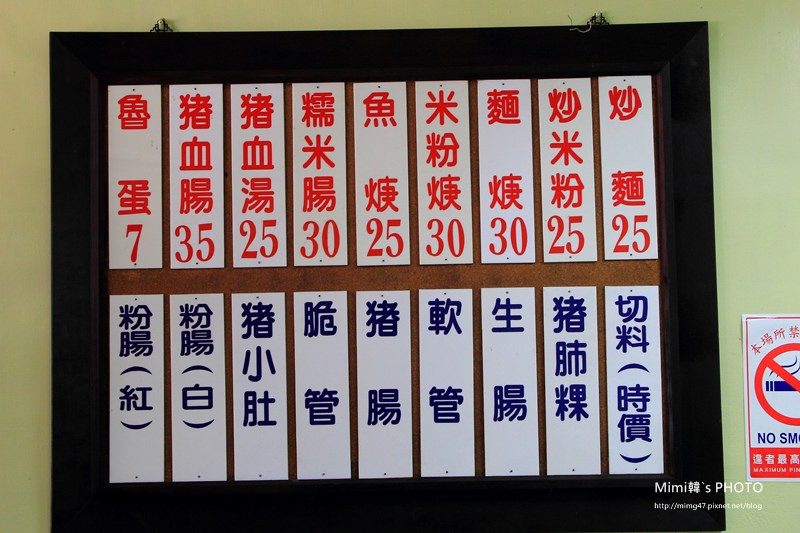 炒麵25
炒米粉25
麵焿30
米粉焿30
魚焿25
糯米腸30
豬血湯25
豬血腸35
魯蛋7
切料(時價)
豬肺粿
生腸
軟管
豬腸
脆管
豬小肚
粉腸(白)
粉腸(紅)
本場所禁
NO SMO
違者最高
MAXIMUM FIN
Mimi韓`s PHOTO
http://mimg47.pixnet.net/blog